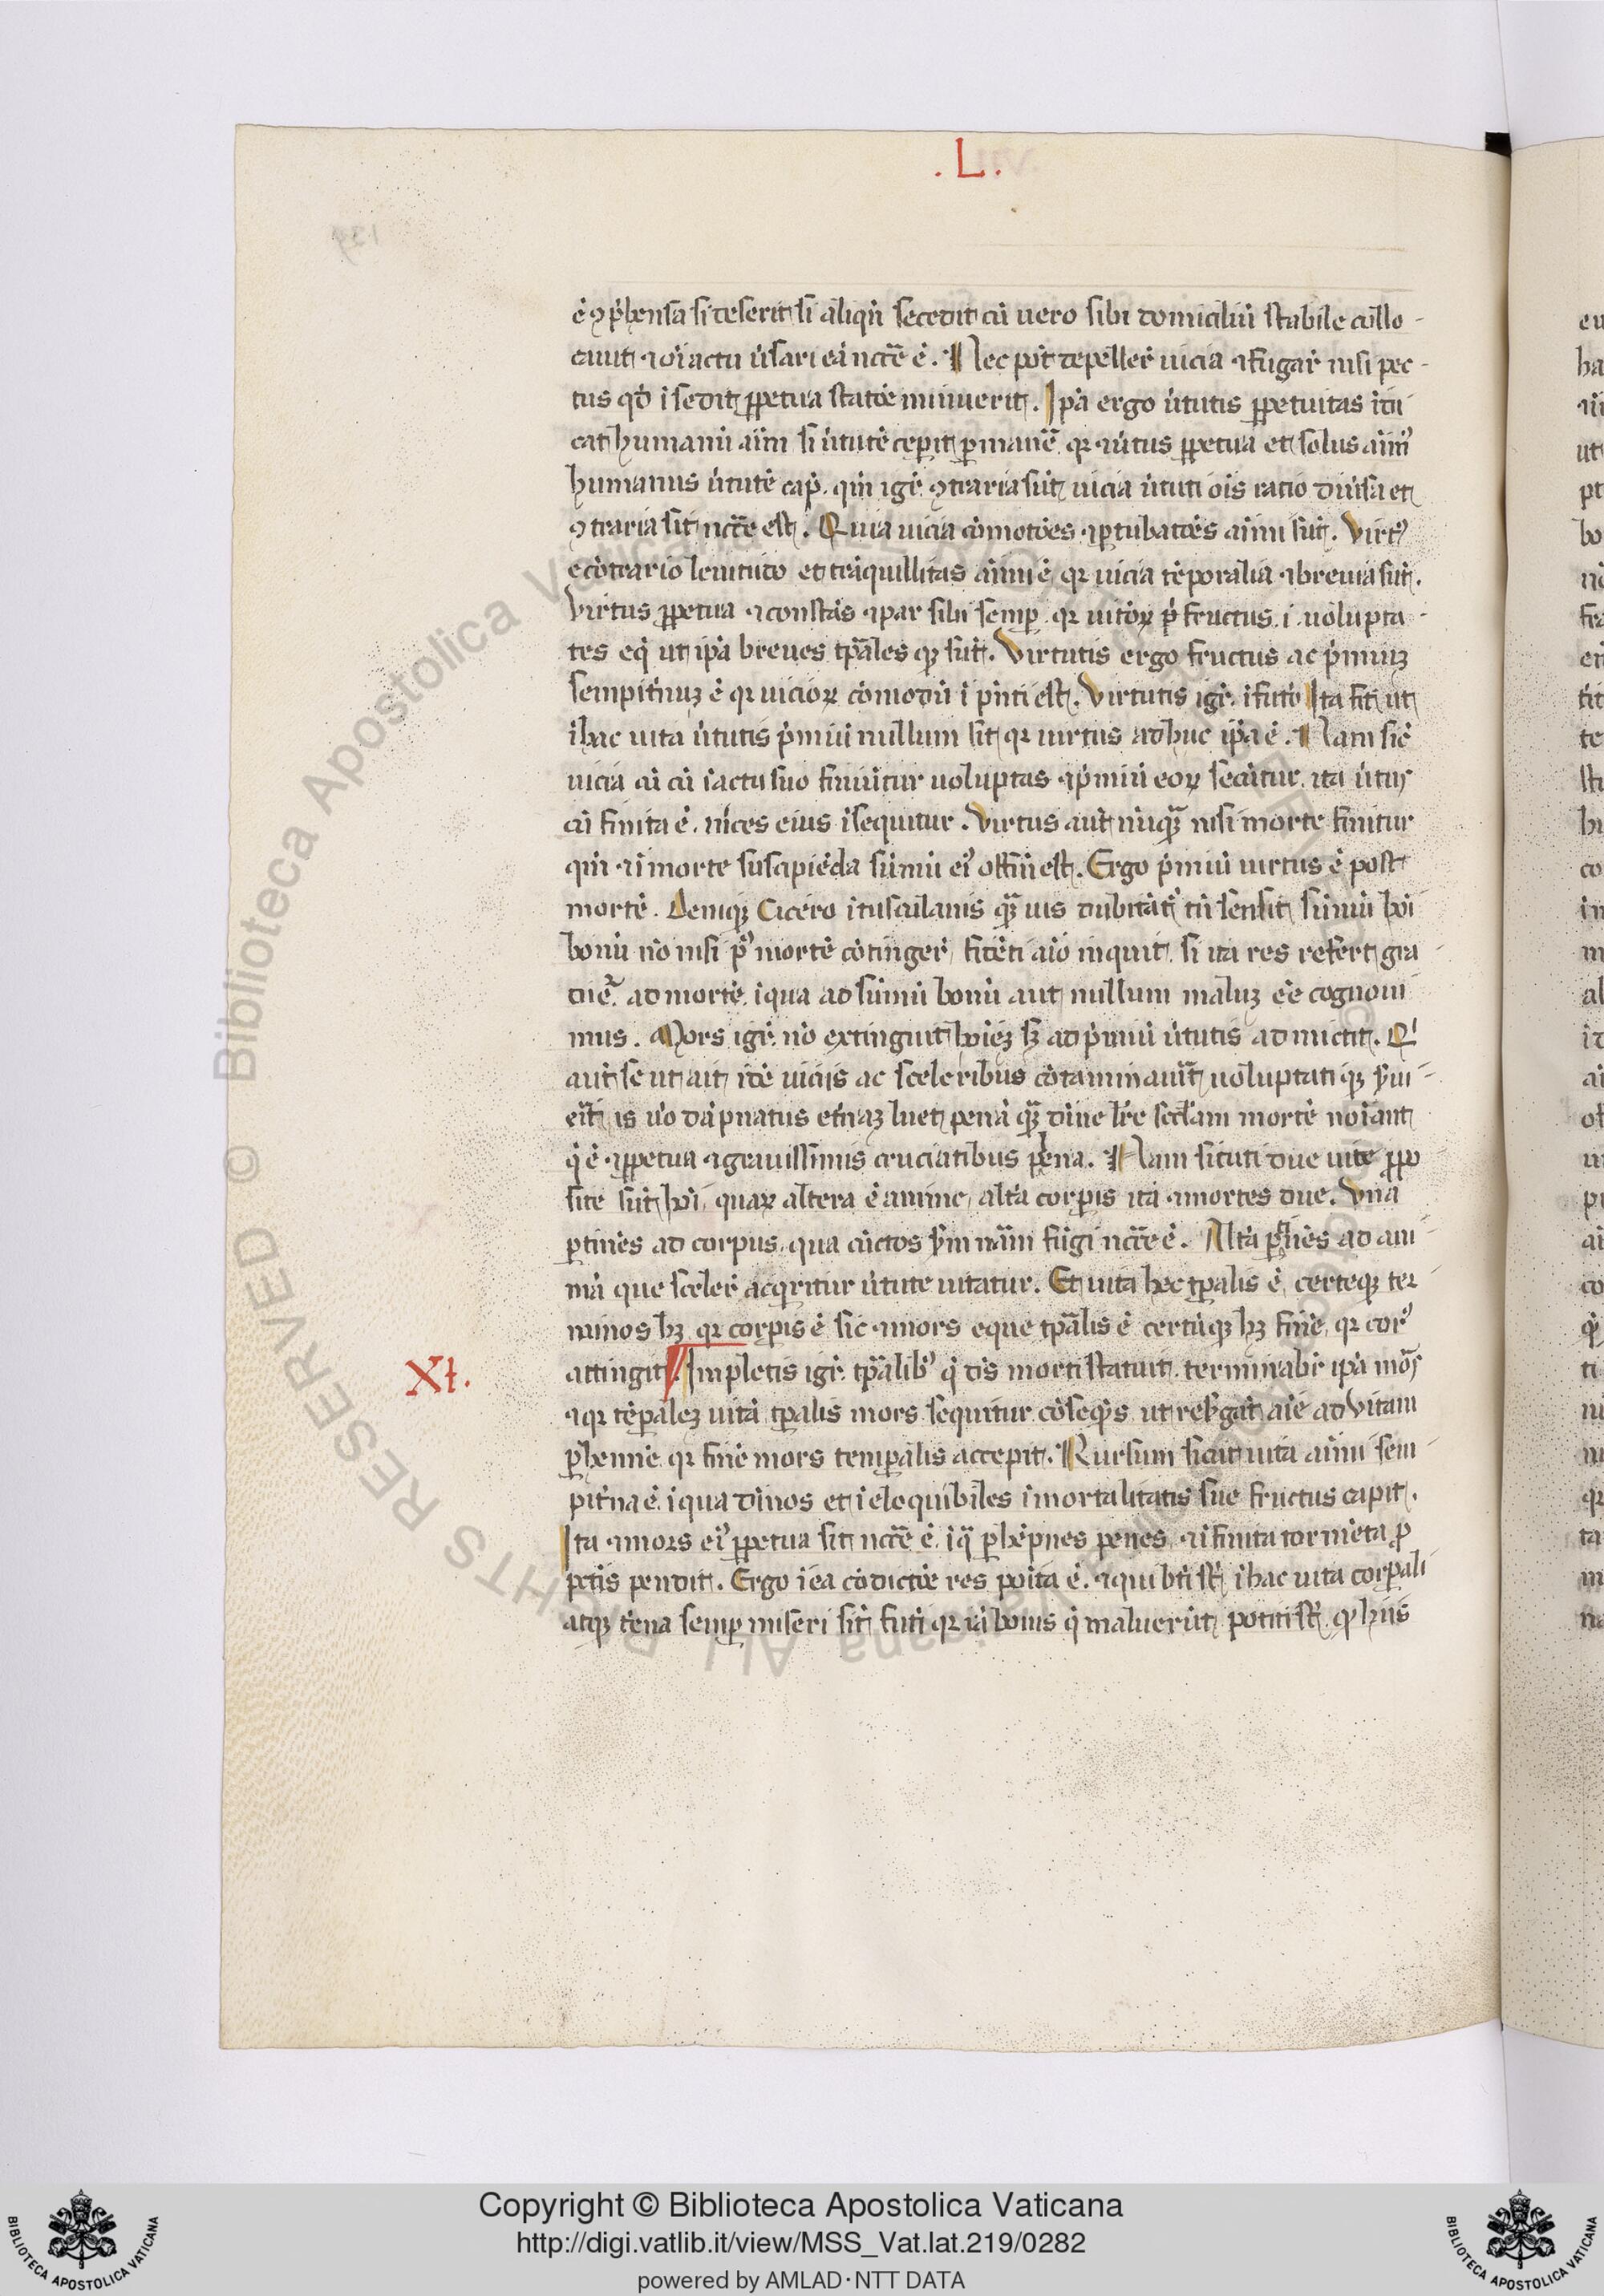 . L .
ē ꝯp̄hensa si deserit si aliqn̄ secedit cū vero sibi domiciliū stabile collo-
cauit ⁊ oī actu ūsari eā ncc̄e ē. Nec pot̄ depeller̄ uicia ⁊ fugar̄ nisi pec-
tus qd̄ īsedit ꝑpetua statōe muniuerit. Ip̄a ergo ūtutis ꝑpetuitas īdi
cat humanū aīm si ūtutē cepit ꝑmanē qr ⁊ ūtus ꝑpetua et solus aīmꝰ
humanus ūtutē cap̄. qm̄ igr̄ ꝯtraria sūt uicia ūtuti oīs ratio diūsa et
ꝯtraria sit ncc̄e est. Quia uicia cōmotōes ⁊ ꝑturbatōes aīmi sūt. Virtꝰ
ecōtrario lenitudo et trāquillitas aīmi ē qr uicia tēporalia ⁊ breuia sūt.
Virtus ꝑpetua ⁊ constās ⁊ par sibi semꝑ qr uitioꝝ fructus .i. uolupta
tes eq̄ ut ip̄a breues tp̄ales qꝫ sūt. Virtutis ergo fructus ac p̄miuꝫ
sempit̄nuꝫ ē qr uicioꝝ cōmodū ī p̄nti est. Virtutis igr̄ ī futō Ita fit ut
ī hac uita ūtutis p̄miū nullum sit qr uirtus adhuc ip̄a ē. Nam sic̄
uicia cū ī actu suo finiūtur uoluptas ⁊ p̄miū eoꝝ secūtur. ita ūtus
cū finita ē. m̄ces eius īsequitur. Virtus aut̄ nūqꝫ nisi morte finitur
qm̄ ⁊ ī morte suscipiēda sūmū eiꝰ offm̄ est. Ergo p̄miū uirtus ē post
mortē. Deniqꝫ Cicero ī tusculanis qꝫ uis dubitāt̄ tn̄ sensit sūmū hoī
bonū nō nisi pꝰ mortē cōtinger̄ fidēti aīo inquit si ita res refert gra
diē ad mortē. ī qua ad sūmū bonū aut nullum maluꝫ eē cognoui
mus. Mors igr̄ nō extinguit hoīeꝫ sꝫ ad p̄miū ūtutis admictit. Q
aut̄ se ut ait idē uiciis ac sceleribus cōtaminauīt uoluptatiqꝫ
is ūo dāpnatus et̄naꝫ luet penā qꝫ diuīe lr̄e secd̄am mortē noīant
q̄ ē ⁊ ꝑpetua ⁊ grauissimis cruciatibus plena. Nam sicuti due uite ꝓpo
site sūt hoī, quaꝝ altera ē anime, alt̄a corꝑis ita ⁊ mortes due. Vna
ꝑtinēs ad corpus, qua cūctos nām fūgi ncc̄e ē. Alt̄a ꝑtinēs ad ani
mā que sceler̄ acq̄ritur ūtute uitatur. Et uita hec tp̄alis ē certeqꝫ ter
minos hꝫ qr corꝑis ē sic ⁊ mors eque tp̄alis ē certūqꝫ hꝫ finē, qr corꝰ
XI.
attingit. Impletis igr̄ tp̄alibꝰ q̄ ds̄ morti statuit. terminabr̄ ip̄a mors
⁊ qr tēꝑaleꝫ uitā tp̄alis mors sequitur cōseqns ut resūgāt aīe ad vitam
ꝑhennē qr finē mors temꝑalis accepit. Rursum sicut uita aīmi sem
pit̄na ē ī qua diūos et īeloquibiles īmortalitatis sue fructus capit.
Ita ⁊ mors eiꝰ ꝑpetua sit ncc̄e ē. ī q̄ ꝑhēpnes penes ⁊ īfinita tormēta ꝓ
pctīs pendit. Ergo ī ea cōdictōe res poīta ē. ⁊ qui bti st̄ ī hac uita corꝑali
atqꝫ tēna semꝑ miseri sīt futi qr iā bonis q̄ maluerūt potiti st̄ ꝙ hiis